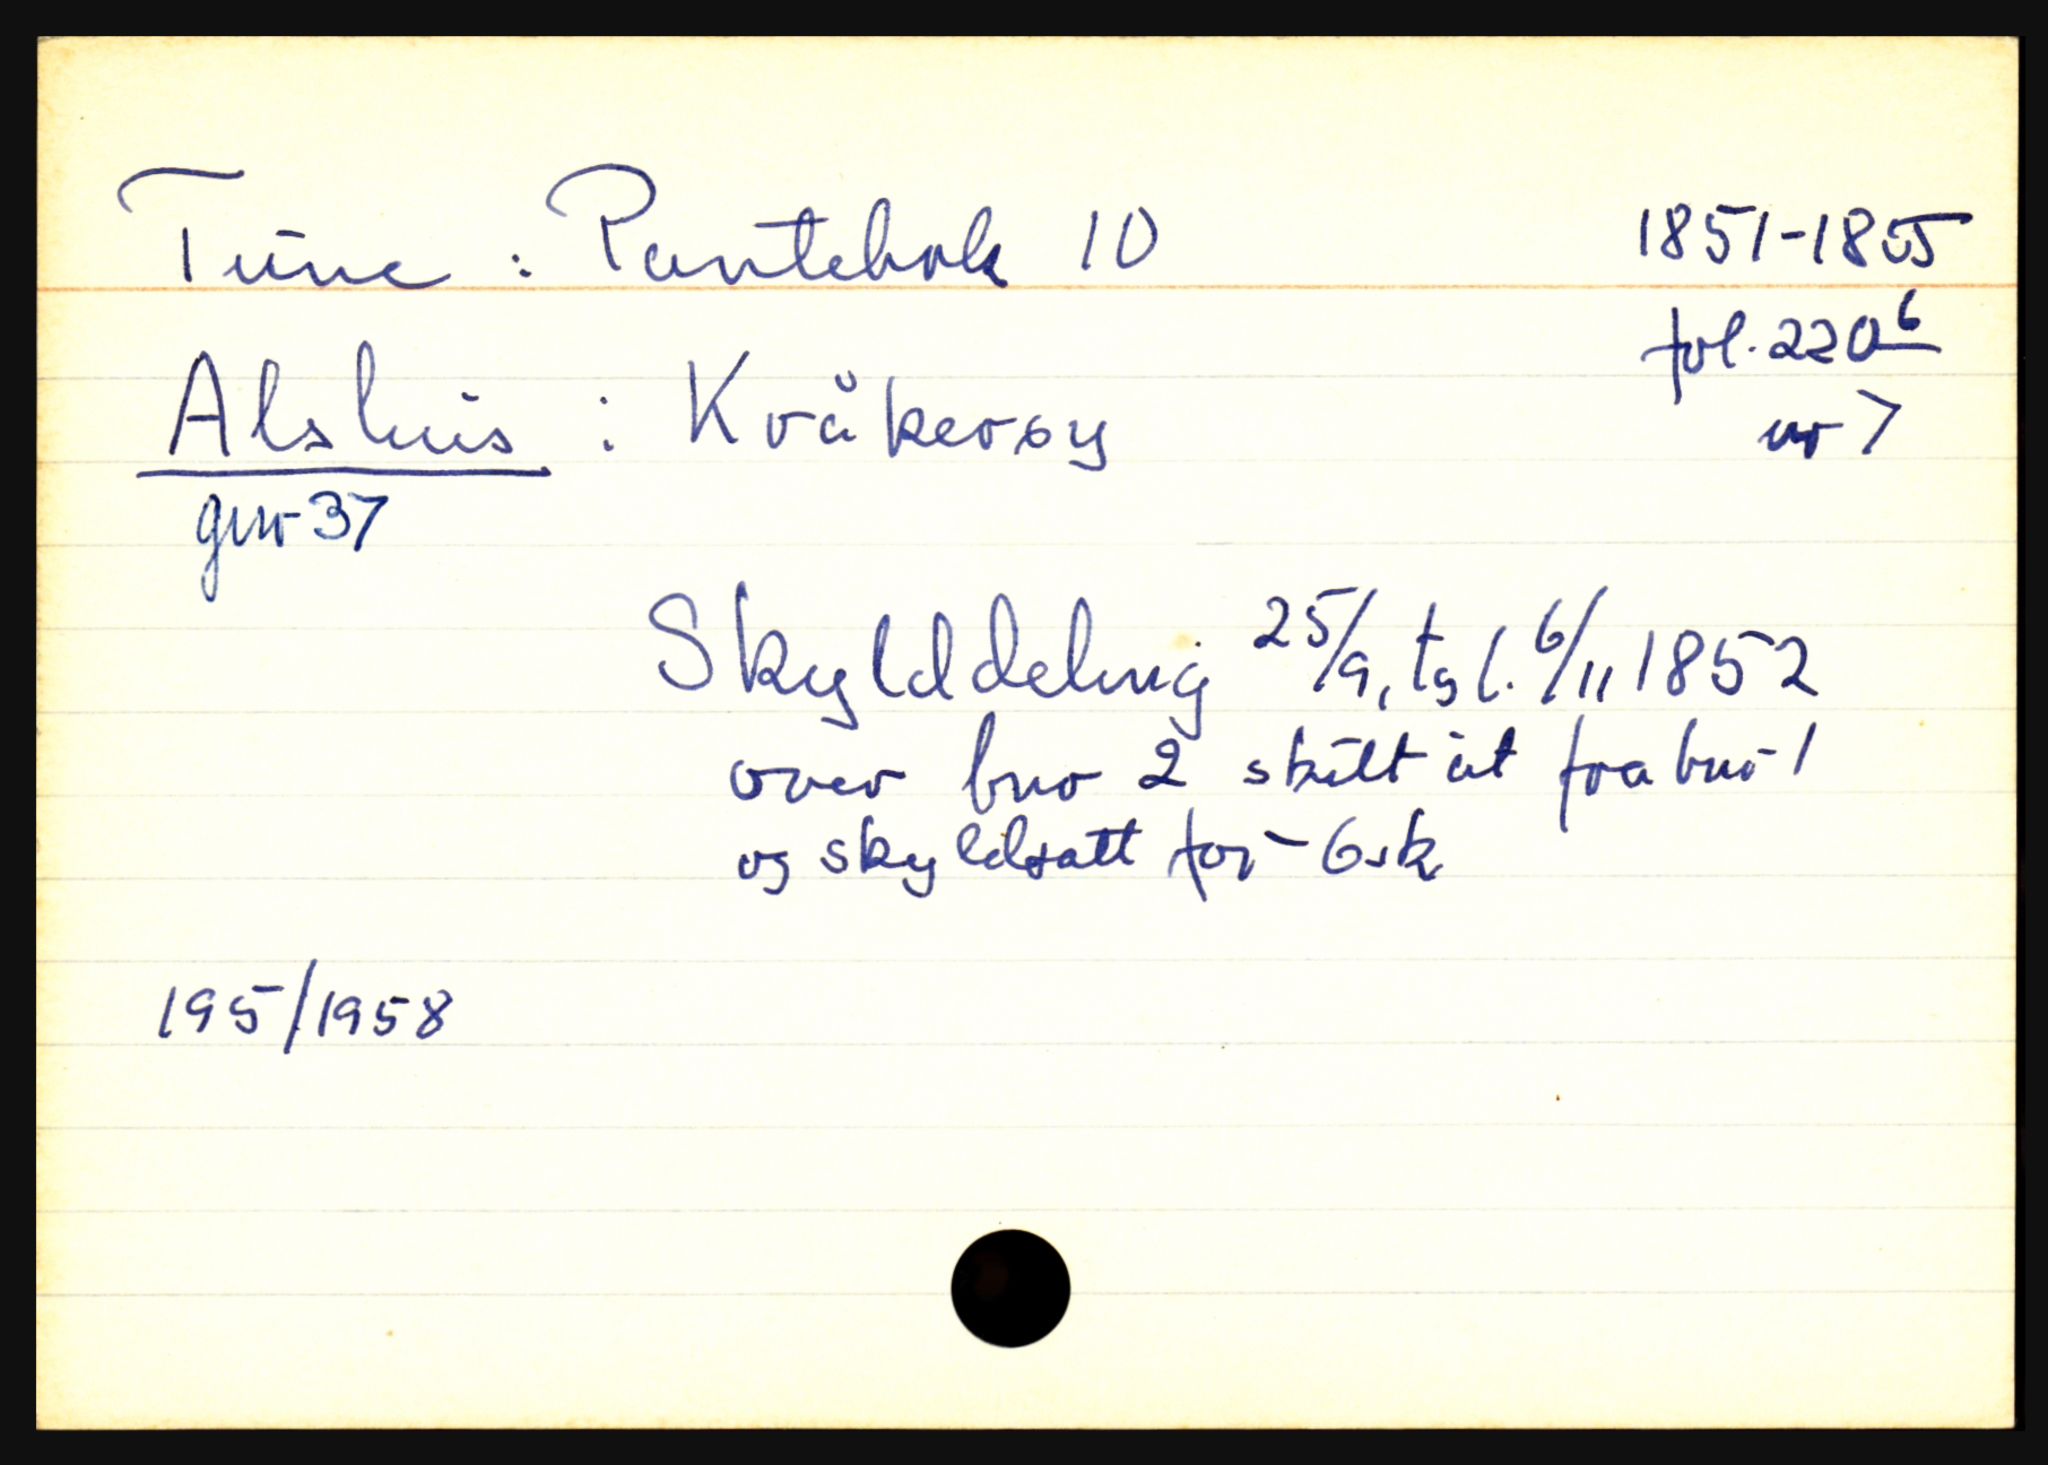 Tune : Pantebok 10 1851-1855
fol. 220b
Alshus : Kråkerøy nr 7
gnr 37
Skylddeling 25/9, tgl. 6/11 1852
over bnr 2 skilt ut fra bnr 1
og skyldsatt for - 6 sk
195/1958